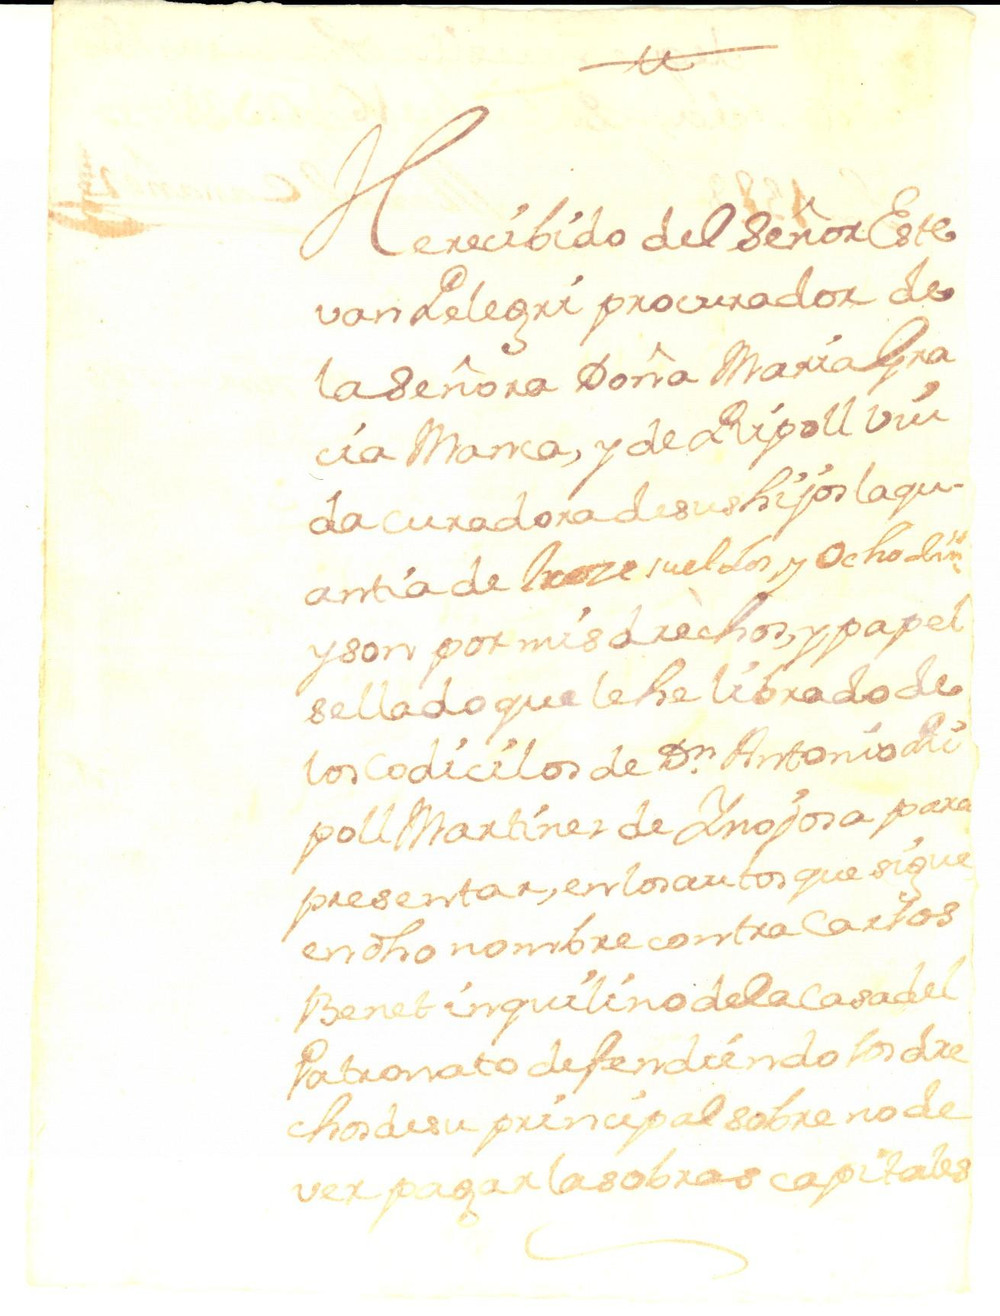 He recibido del Señor Este
van Pelegri procurador de
la Señora Doña Maria Gra
cia Manca, y de Ripoll viu
da curadora desus hijos laqu-
antia de treze sueldos, y ocho din.s
y son por mis drechos, y papel
sellado que le he librado de
los codicilos de Dn. Antonio Ri
poll Martines de Ynojosa para
presentar, enlos autos que sigue
en dho nombre contra Carlos
Benet inquilino dela Casa del
Patronato defendiendo los dre
chos desu principal sobre no de
ver pagar las obras capitales